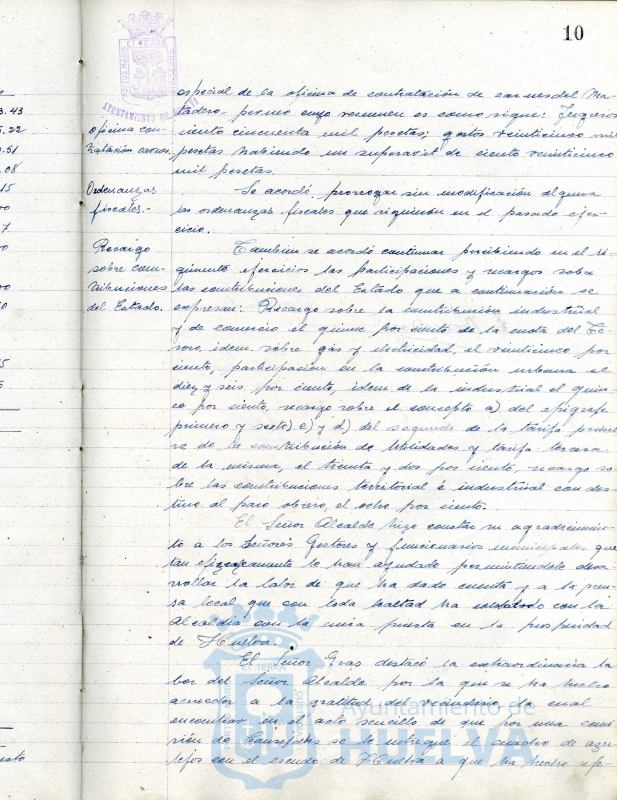 10
AYUNTAMIENTO DE
3.43
5.22
.51
.08
15
especial de la oficina de contratación de carnes del Ma-
tadero, por cuyo resumen es como sigue: Ingresos
oficina con-
tratación carnes
ciento cincuenta mil pesetas; gastos veinticinco mil
pesetas habiendo un superavit de ciento veinticinco
mil pesetas.
Ordenanzas
fiscales.-
Se acordó prorrogar sin modificación alguna
las ordenanzas fiscales que rigieron en el pasado ejer-
cicio.
Recargo
sobre con-
tribuciones
del Estado.
Tambien se acordó continuar percibiendo en el si-
guiente ejercicio las participaciones y recargos sobre
las contribuciones del Estado que a continuación se
expresan: Recargo sobre la contribución industrial
y de comercio el quince por ciento de la cuota del Te-
soro, idem sobre gas y electricidad, el veinticinco por
ciento, participación en la contribución urbana el
diez y seis por ciento, idem de la industrial el quin-
ce por ciento, recargo sobre el concepto a) del epigrafe
primero y sexto) c) y d) del segundo de la tarifa prime-
ra de la contribución de Utilidades y tarifa tercera
de la misma, el treinta y dos por ciento, recargo so-
bre las contribuciones territorial é industrial con des-
tino al paro obrero, el ocho por ciento.
El Señor Alcalde hizo constar su agradecimien-
to a los Señores Gestores y funcionarios municipales que
tan eficazmente le han ayudado permitiendole desa-
rrollar la labor de que ha dado cuenta y a la pren-
sa local que con toda lealtad ha colaborado con la
Alcaldia con la mira puesta en la prosperidad
de Huelva.
El Señor Gras destacó la extraordinaria la-
bor del Señor Alcalde por la que se ha hecho
acreedor a la gratitud del vecindario la cual
en el acto sencillo de que por una comi-
sión de se le entregue el cuadro de azu-
lejos con el escudo de Huelva a que ha hecho refe-
Ayuntamiento de
HUELVA